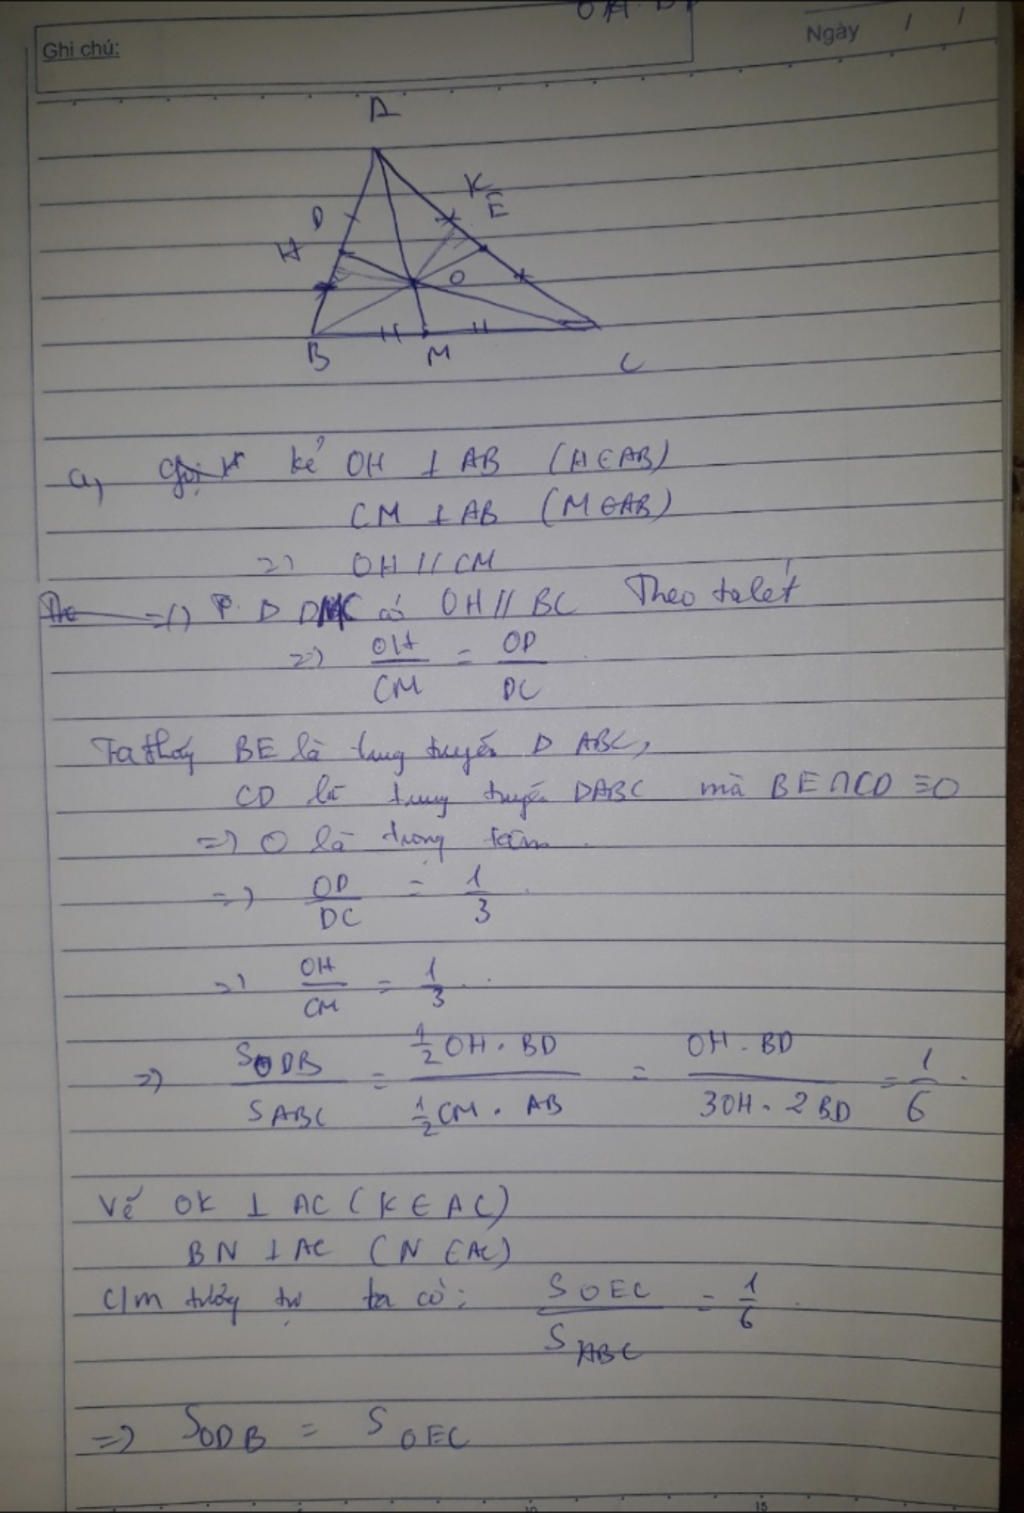 OH . BD
Ghi chú:
Ngày / /
A
D
K
E
H
O
B
M
C
a, kẻ OH ⊥ AB (H∈AB)
CM ⊥ AB (M∈AB)
=> OH // CM
=> DMC có OH // BC Theo talét
=> OH/CM = OD/DC
Ta thấy BE là trung tuyến D ABC,
CD là trung tuyến DABC mà BE∩CD ≡O
=> O là trọng tâm
=> OD/DC = 1/3
=> OH/CM = 1/3
=> SODB/SABC = 1/2 OH . BD / 1/2 CM . AB = OH . BD / 3OH . 2BD = 1/6
Vẽ OK ⊥ AC (K∈AC)
BN ⊥ AC (N∈AC)
C/m tương tự ta có: SOEC/SABC = 1/6
=> SODB = SOEC
10 15